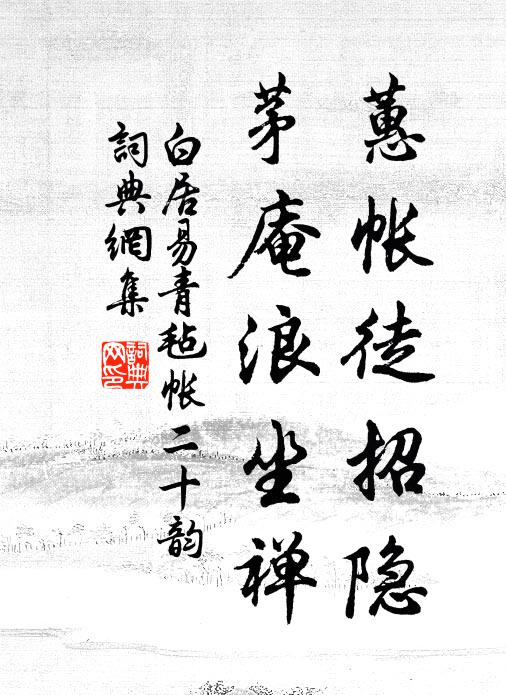 蕙帐徒招隐
茅庵浪坐禅
白居易青毡帐二十韵
詞典網集
詞典
网印